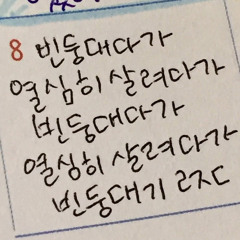 8 빈둥대다가
열심히 살려다가
빈둥대다가
열심히 살려다가
빈둥대기 근ㅈㄷ